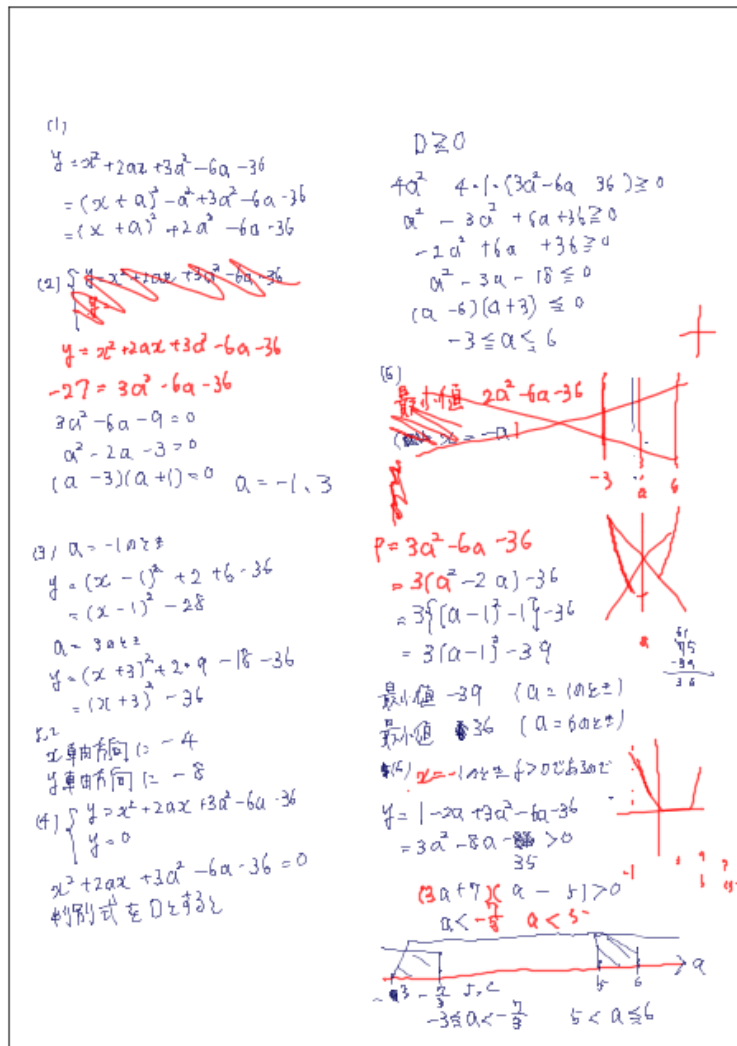 (1)
y = x² + 2ax + 3a² - 6a - 36
= (x + a)² - a² + 3a² - 6a - 36
= (x + a)² + 2a² - 6a - 36
(2) { y = x² + 2ax + 3a² - 6a - 36
y =
y = x² + 2ax + 3a² - 6a - 36
-27 = 3a² - 6a - 36
3a² - 6a - 9 = 0
a² - 2a - 3 = 0
(a - 3)(a + 1) = 0 a = -1、3
(3) a = -1のとき
y = (x - 1)² + 2 + 6 - 36
= (x - 1)² - 28
a = 3のとき
y = (x + 3)² + 2・9 - 18 - 36
= (x + 3)² - 36
よって
x軸方向に -4
y軸方向に -8
(4) { y = x² + 2ax + 3a² - 6a - 36
y = 0
x² + 2ax + 3a² - 6a - 36 = 0
判別式をDとすると
D ≧ 0
4a² 4・1・(3a² - 6a 36) ≧ 0
a² - 3a² + 6a + 36 ≧ 0
-2a² + 6a + 36 ≧ 0
a² - 3a - 18 ≦ 0
(a - 6)(a + 3) ≦ 0
-3 ≦ a ≦ 6
(5)
最小値 2a² - 6a - 36
x = -a
-3 a 6
P = 3a² - 6a - 36
= 3(a² - 2a) - 36
= 3{(a - 1)² - 1} - 36
= 3(a - 1)² - 39
75
-39
36
最小値 -39 (a = 1のとき)
最小値 36 (a = 6のとき)
(6) x = -1のとき y > 0であるので
y = 1 - 2a + 3a² - 6a - 36
= 3a² - 8a - 35 > 0
(3a + 7)(a - 5) > 0
a < -7/3 a < 5
-1
-3 -7/3 5 6 a
よって
-3 ≦ a < -7/3 5 < a ≦ 6